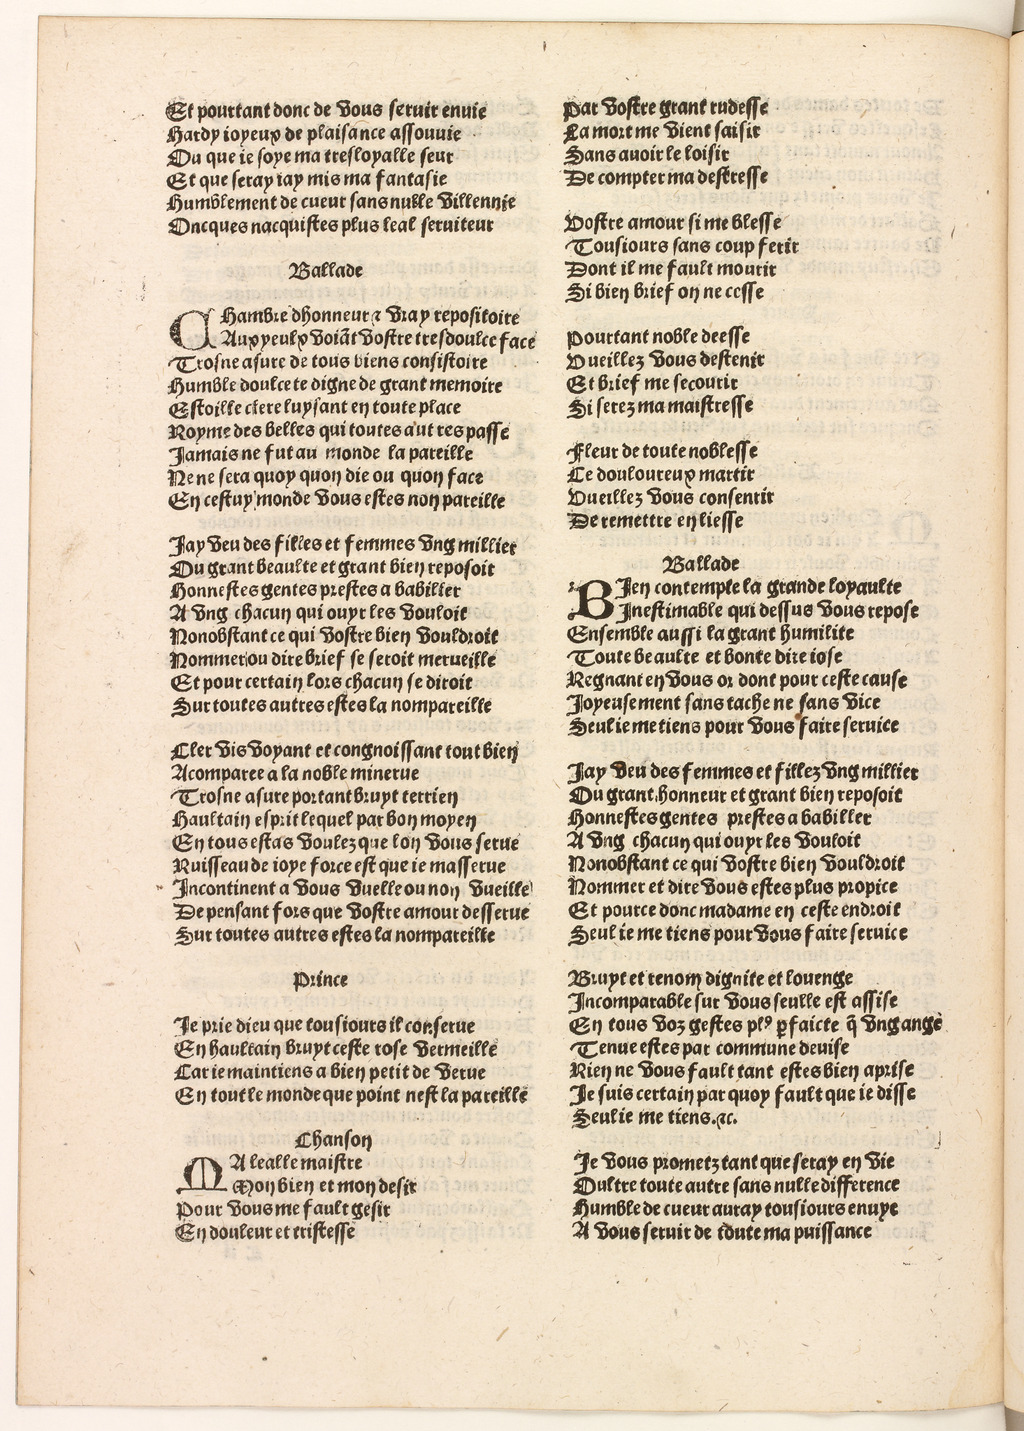 Et pourtant donc de vous seruir enuie
Hardy ioyeux de plaisance assouuie
Ou que ie soye ma tresloyalle seur
Et que seray iay mis ma fantasie
Humblement de cueur sans nulle villennie
Oncques nacquistes plus leal seruiteur
Ballade
CHambre dhonneur ⁊ vray repositoire
Aux yeulx voiãt vostre tresdoulce face
Trosne asure de tous biens consistoire
Humble doulcete digne de grant memoire
Estoille clere luysant en toute place
Royme des belles qui toutes autres passe
Jamais ne fut au monde la pareille
Ne ne sera quoy quon die ou quon face
En cestuy monde vous estes non pareille
Jay veu des filles et femmes vng millier
Ou grant beaulte et grant bien reposoit
Honnestes gentes prestes a babilier
A vng chacun qui ouyr les vouloit
Nonobstant ce qui vostre bien vouldroit
Nommer ou dire brief se seroit merueille
Et pour certain lors chacun se diroit
Sur toutes autres estes la nompareille
Cler vis voyant et congnoissant tout bien
Acomparee a la noble minerue
Trosne asure portant bruyt terrien
Haultain esprit lequel par bon moyen
En tous estas voulez que lon vous serue
Ruisseau de ioye force est que ie masserue
Incontinent a vous vuelle ou non vueille
De pensant fors que vostre amour desserue
Sur toutes autres estes la nompareille
Prince
Je prie dieu que tousiours il conserue
En haultain bruyt ceste rose vermeille
Car ie maintiens a bien petit de verue
En tout le monde que point nest la pareille
Chanson
MA lealle maistre
Mon bien et mon desir
Pour vous me fault gesir
En douleur et tristesse
Par vostre grant rudesse
La mort me vient saisir
Sans auoir le loisir
De compter ma destresse
Vostre amour si me blesse
Tousiours sans coup ferir
Dont il me fault mourir
Si bien brief on ne cesse
Pourtant noble deesse
Vueillez vous destenir
Et brief me secourir
Si serez ma maistresse
Fleur de toute noblesse
Ce douloureux martir
Vueillez vous consentir
De remettre en liesse
Ballade
BJen contemple la grande loyaulte
Inestimable qui dessus vous repose
Ensemble aussi la grant humilite
Toute beaulte et bonte dire iose
Regnant en vous or dont pour ceste cause
Joyeusement sans tache ne sans vice
Seul ie me tiens pour vous faire seruice
Jay veu des femmes et fillez vng millier
Ou grant honneur et grant bien reposoit
Honnestes gentes prestes a babiller
A vng chacun qui ouyr les vouloit
Nonobstant ce qui vostre bien vouldroit
Nommer et dire vous estes plus propice
Et pource donc madame en ceste endroit
Seul ie me tiens pour vous faire seruice
Bruyt et renom dignite et louenge
Incomparable sur vous seulle est assise
En tous voz gestes plꝰ ꝑfaicte q̃ vng ange
Tenue estes par commune deuise
Rien ne vous fault tant estes bien aprise
Je suis certain par quoy fault que ie disse
Seul ie me tiens.⁊c.
Je vous prometz tant que seray en vie
Oultre toute autre sans nulle difference
Humble de cueur auray tousiours enuye
A vous seruir de toute ma puissance